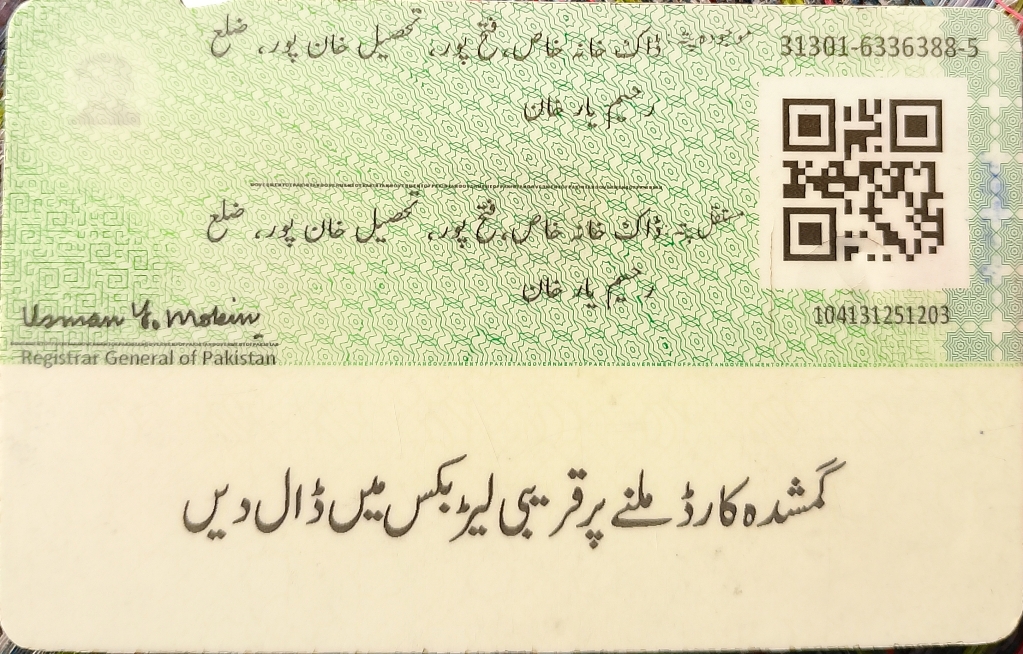 موجودہ پتہ ڈاک خانہ خاص، فتح پور، تحصیل خان پور، ضلع
31301-6336388-5
رحیم یار خان
GOVERNMENTOFPAKISTAN
مستقل پتہ ڈاک خانہ خاص، فتح پور، تحصیل خان پور، ضلع
رحیم یار خان
104131251203
Usman Y. Mobin
Registrar General of Pakistan
گمشدہ کارڈ ملنے پر قریبی لیٹر بکس میں ڈال دیں